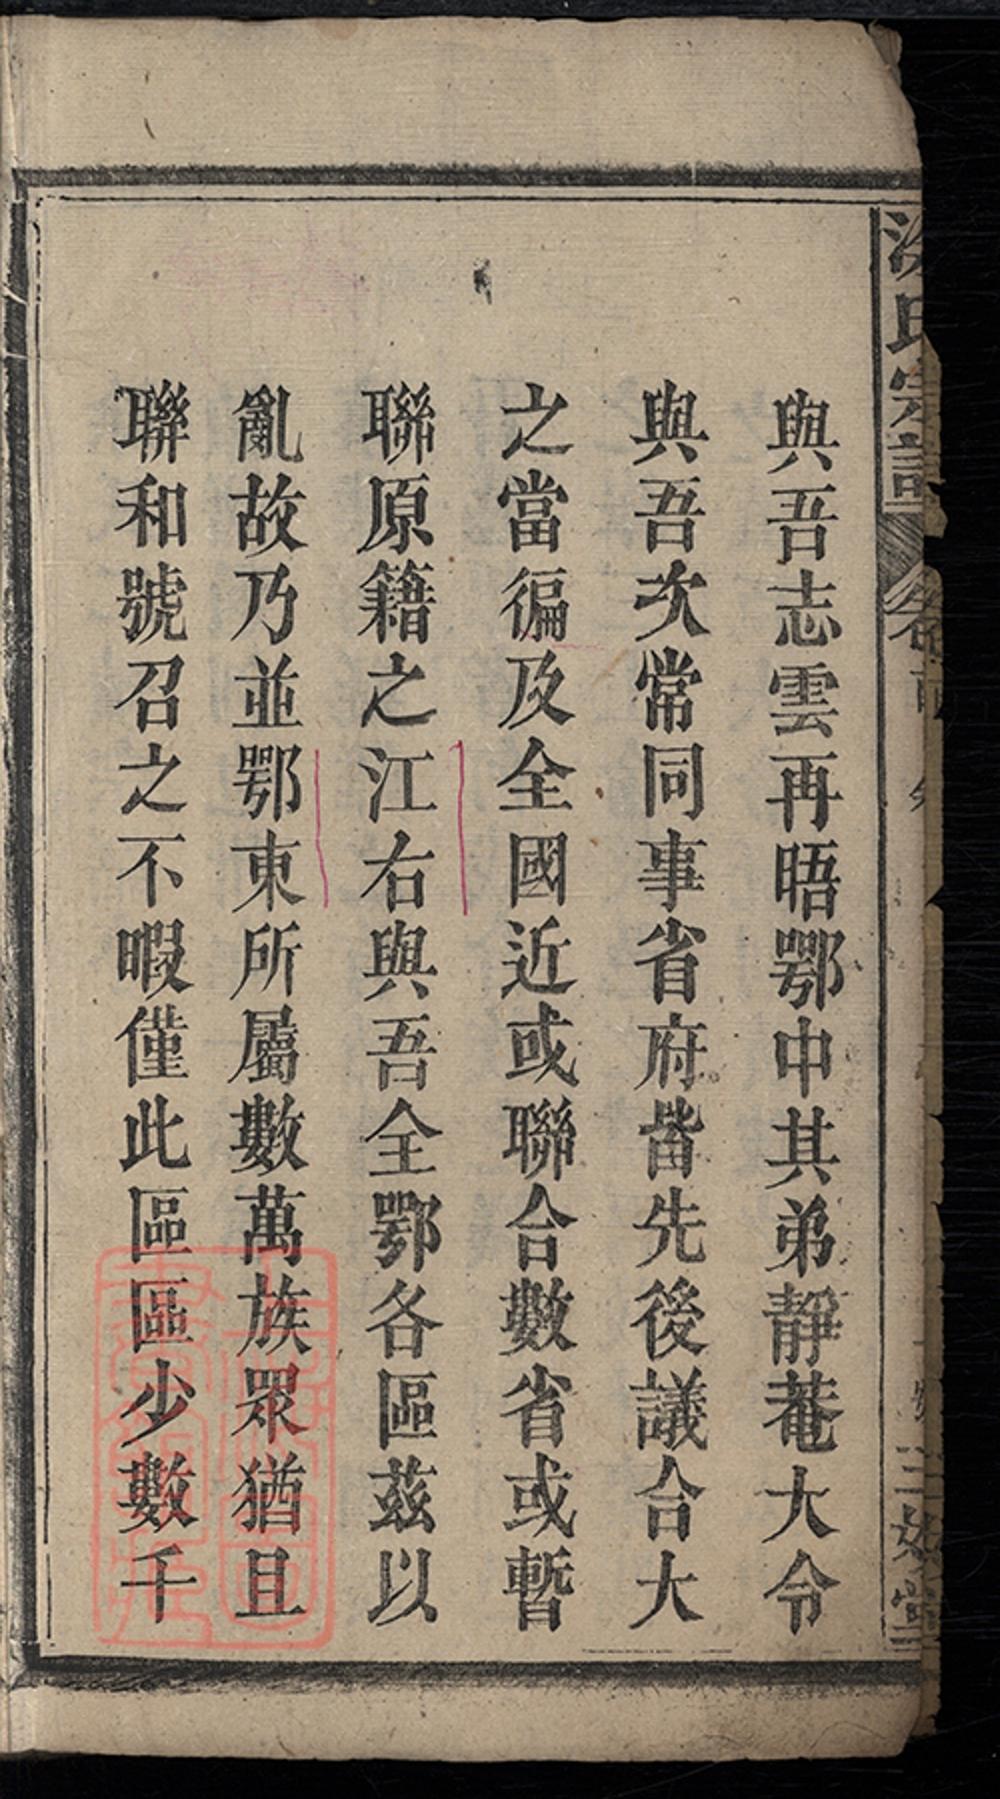 與吾志雲再晤鄂中其弟靜菴大令
與吾次常同事省府皆先後議合大
之當徧及全國近或聯合數省或暫
聯原籍之江右與吾全鄂各區茲以
亂故乃並鄂東所屬數萬族眾猶且
聯和號召之不暇僅此區區少數千